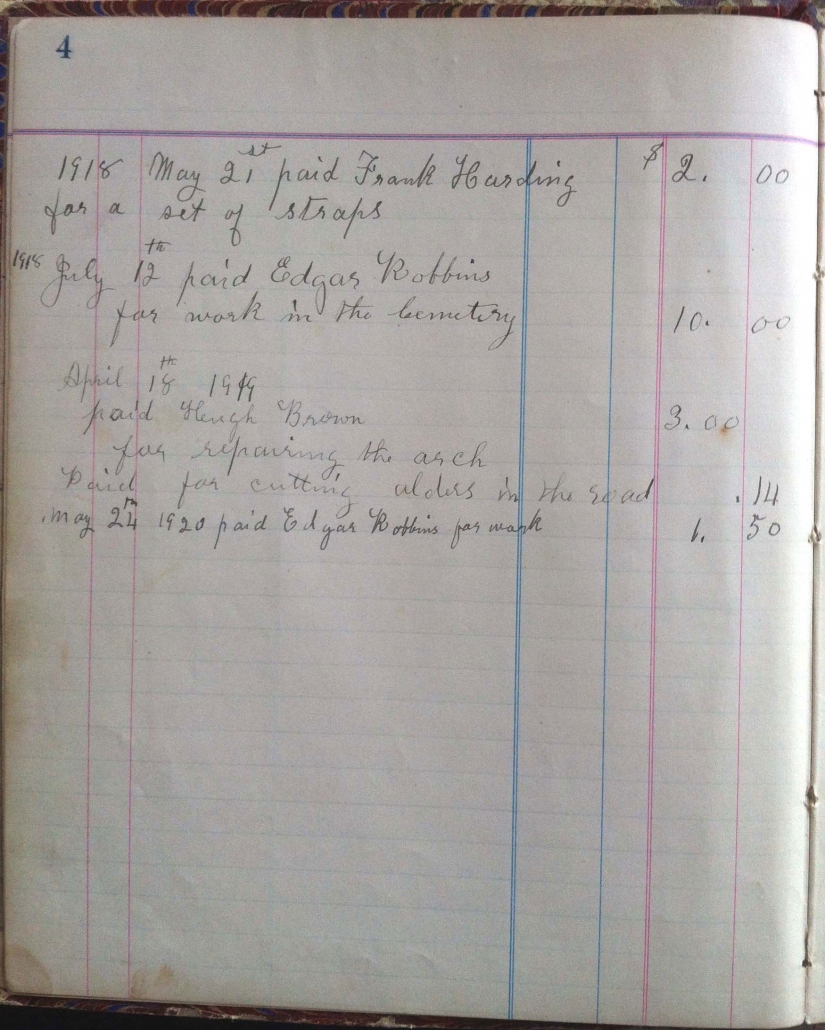 4
1918 May 21st paid Frank Harding $ 2. 00
for a set of straps
1918 July 12th paid Edgar Robbins
for work in the Cemetery 10. 00
April 18th 1919
paid Hugh Brown 3. 00
for repairing the arch
Paid for cutting alders in the road .14
May 24th 1920 paid Edgar Robbins for work 1. 50